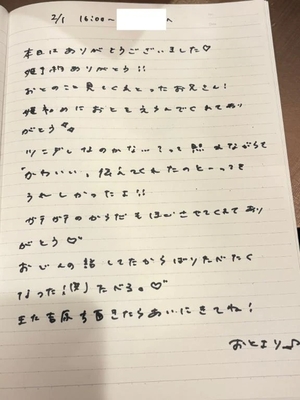 2/1 16:00〜 へ
本日はありがとうございました♡
姫予約ありがとう!!
おとのこと見てくれとったお兄さん!
姫初めにおとをえらんでくれてあり
がとう
ツンデレなのかな…?って照れながらも
"かわいい"伝えてくれたのとーっても
うれしかったよ!!
ガチガチのからだもほぐさせてくれてあり
がとう♡
おじんの話してたからばりたべたく
なった!(笑)たべる。♡
また吉原き たらあいにきてね!
おとより♪